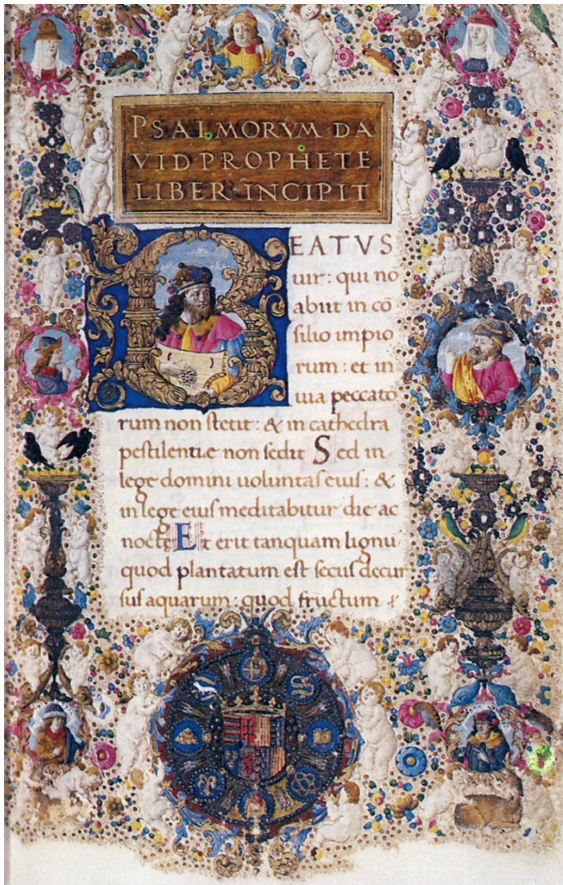 PSALMORVM DA
VID PROPHETE
LIBER INCIPIT
BEATVS
uir: qui no
abiit in cō
silio impio
rum: et in
uia peccato
rum non stetit: & in cathedra
pestilentie non sedit Sed in
lege domini voluntas eius: &
in lege eius meditabitur die ac
nocte Et erit tanquam lignū
quod plantatum est secus decur
sus aquarum: quod fructum &